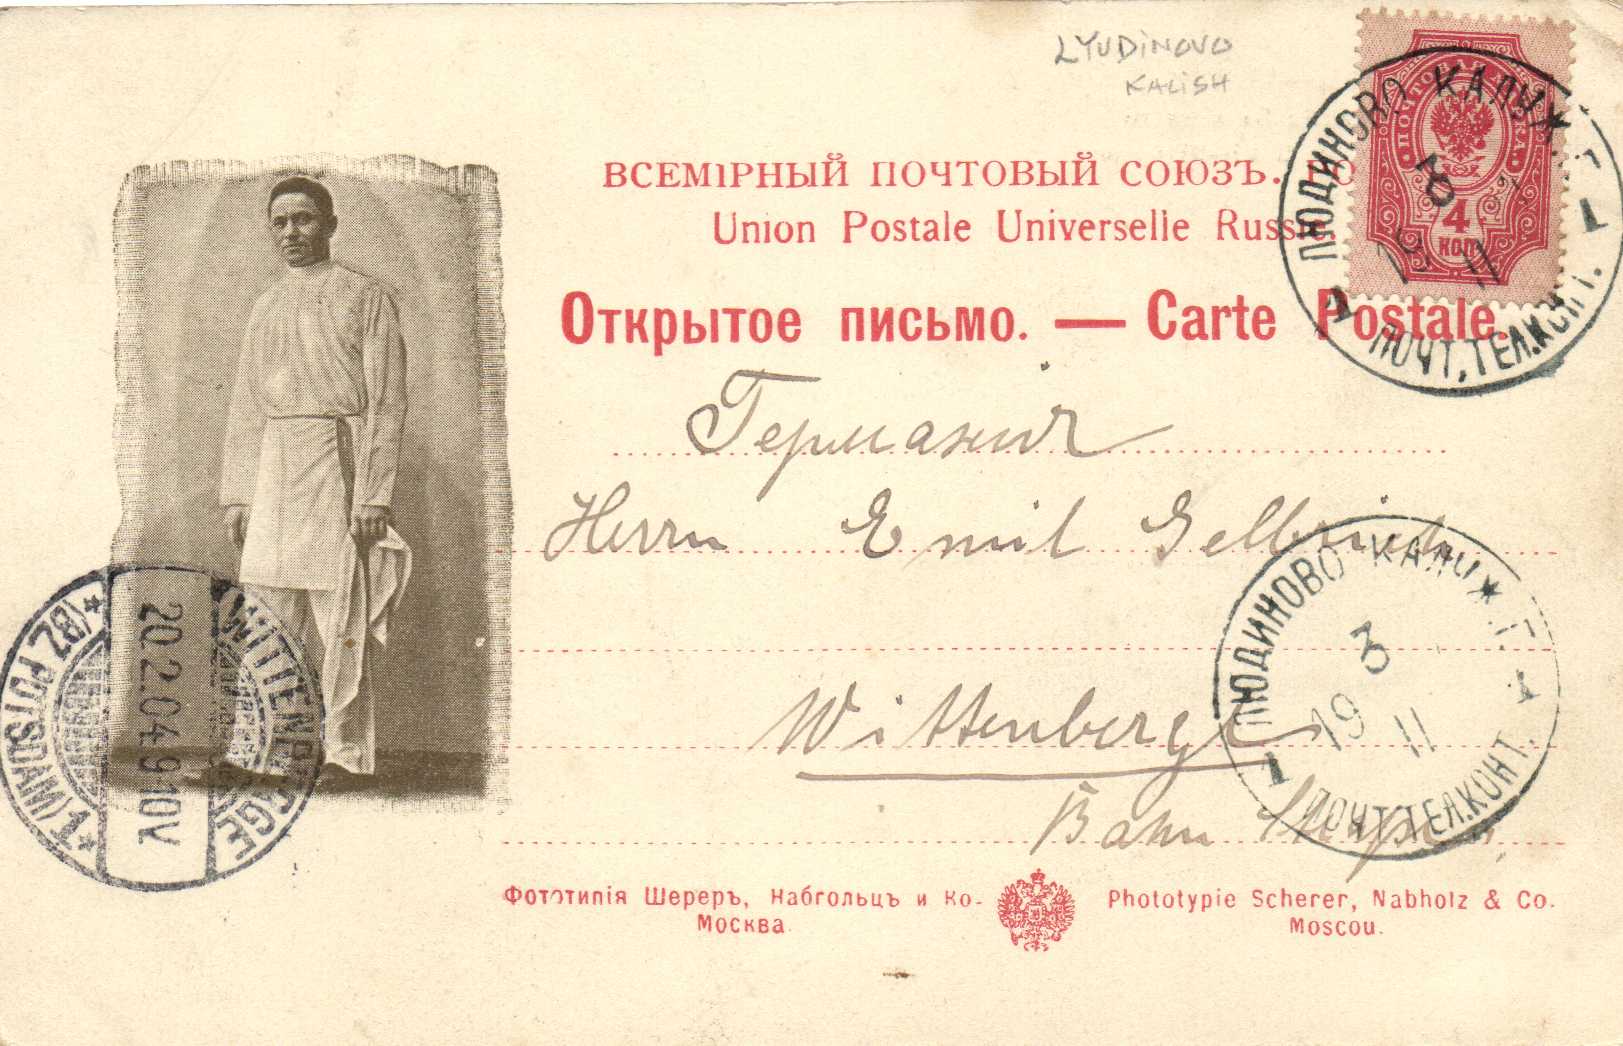 LYUDiNOVO
KALiSH
ВСЕМІРНЫЙ ПОЧТОВЫЙ СОЮЗЪ.
Union Postale Universelle Russie.
Открытое письмо. — Carte Postale.
ПОЧТОВАЯ МАРКА
4
КОП.
ЛЮДИНОВО КАЛУЖ. Г.
3
19 11
1 1
ПОЧТ. ТЕЛ. КОНТ.
Германия
Herrn Emil Gelbrich
Wittenberge
Bahn
ЛЮДИНОВО КАЛУЖ. Г.
3
19 11
1 1
ПОЧТ. ТЕЛ. КОНТ.
WITTENBERGE
20.2.04.9-10V.
* 1 (BZ. POTSDAM) *
Фототипія Шереръ, Набгольцъ и Ко.
Москва.
Phototypie Scherer, Nabholz & Co.
Moscou.